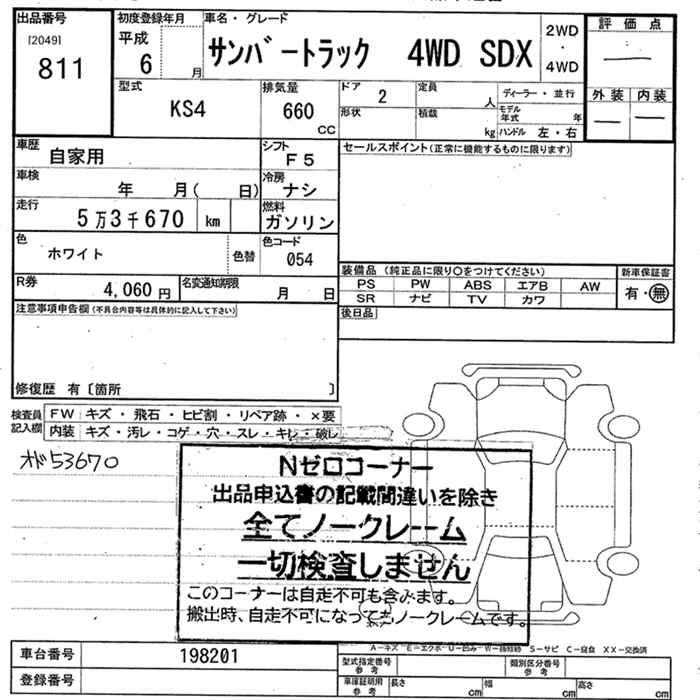 出品番号
[2049]
811
初度登録年月
平成
6 月
車名・グレード
サンバートラック 4WD SDX
2WD
・
4WD
評価点
外装 内装
型式
KS4
排気量
660
CC
ドア
2
定員
人
ディーラー・並行
形状
積載
kg
モデル年式
年
ハンドル 左・右
車歴
自家用
シフト
F5
セールスポイント(正常に機能するものに限ります)
車検
年 月( 日)
冷房
ナシ
走行
5万3千670 km
燃料
ガソリン
色
ホワイト
色替
色コード
054
R券
4,060円
名変通知期限
月 日
装備品(純正品に限り○をつけてください)
PS PW ABS エアB AW
SR ナビ TV カワ
新車保証書
有・無
後日品
注意事項申告欄(不具合内容等は具体的に記入して下さい)
修復歴 有〔箇所 〕
検査員記入欄
FW キズ・飛石・ヒビ割・リペア跡・×要
内装 キズ・汚レ・コゲ・穴・スレ・キレ・破レ
オド53670
Nゼロコーナー
出品申込書の記載間違いを除き
全てノークレーム
一切検査しません
このコーナーは自走不可も含みます。
搬出時、自走不可になってもノークレームです。
A-キズ E-エクボ U-凹み W-補修跡 S-サビ C-腐食 XX-交換済
車台番号
198201
型式指定番号
参考
類別区分番号
参考
登録番号
車庫証明用
参考
長さ cm
幅 cm
高さ cm